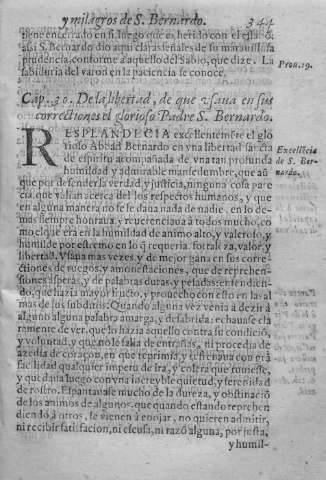 y milagros de S. Bernardo. 344
tiene encerrado en si, luego que es herido con el eslabõ,
assi S. Bernardo dio aqui claras señales de su marauillosa
prudencia, conforme a aquello del Sabio, que dize. La
sabiduria del varon en la paciencia se conoce.
Prou. 19.
Cap. 30. De la libertad, de que vsaua en sus
correctiones el glorioso Padre S. Bernardo.
RESPLANDECIA excellentemẽte el glo
rioso Abbad Bernardo en vna libertad sancta
de espiritu acompañada de vna tan profunda
humildad y admirable mansedumbre, que aũ
Excellẽcia
de S. Ber-
nardo.
que por defender la verdad, y justicia, ninguna cosa pare
cia que valian acerca del los respectos humanos, y que
en alguna manera no se le daua nada de nadie, en lo de-
mas siempre honraua y reuerenciaua à todos mucho, co
mo el que era en la humildad de animo alto, y valeroso, y
humilde por estremo en lo q̃ requeria fortaleza, valor, y
libertad. Vsaua mas vezes, y de mejor gana en sus corre
ctiones de ruegos, y amonestaciones, que de reprehen-
siones asperas, y de palabras duras, y pesadas: entendien-
do, que hazia mayor fructo, y prouecho con esto en las al
mas de sus subditos. Quando alguna vez venia à dezir à
alguno alguna palabra amarga, y desabrida: echauase cla
ramente de ver, que lo hazia aquello contra su condiciõ,
y voluntad, y que no le salia de entrañas, ni procedia de
azedia de coraçon, en que reprimia y refrenaua con grã
facilidad qualquier impetu de ira, y colera que tuuiesse,
y quedaua luego con vna increyble quietud, y serenidad
de rostro. Espantauase mucho de la dureza, y obstinaciõ
de los animos de algunos, que quando estando reprehen
diendo à otros, se vienen à enojar, no quieren admitir,
ni recibir satisfacion, ni escusa, ni razõ alguna, por justa,
y humil-